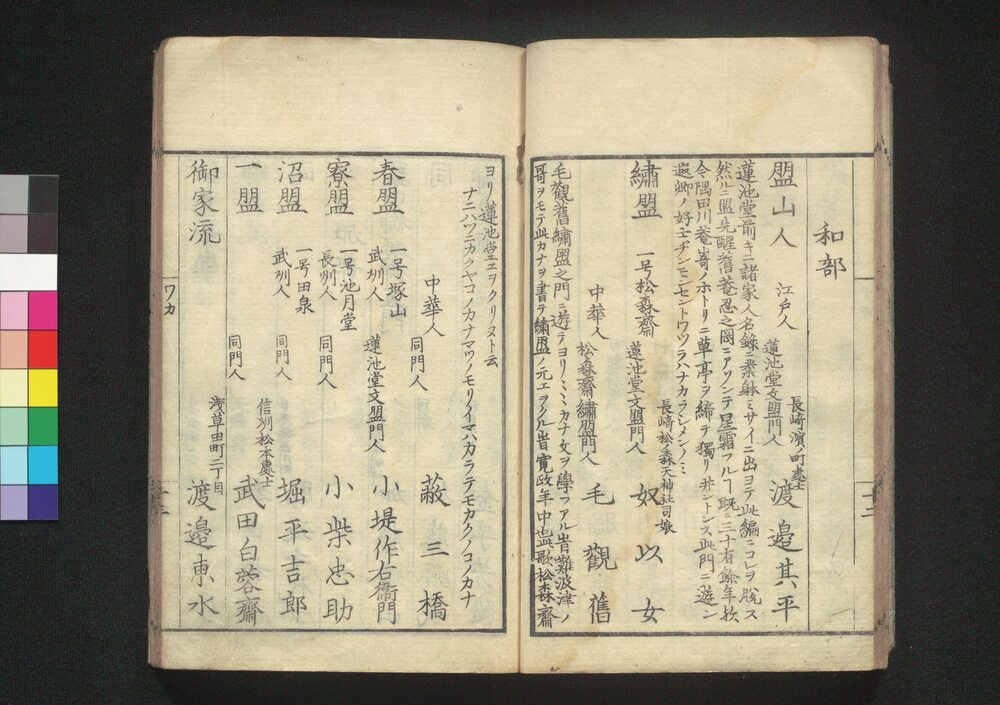 和部
盟山人 江戸人 蓮池堂文盟門人 長崎濱ノ町處士 渡邉其平
蓮池堂前キニ諸家人名録ニ委躰ミサイニ出ヨテ此編ニコレヲ脱ス
然ルニ盟先醒舊菴忍之岡ニアソンテ星霜フルヿ既ニ三十有餘年歟
今隅田川菴﨑ノホトリニ草亭ヲ締テ獨リ 此門ニ遊ン
遐郷ノ好士ヂンモンセントワヅラハナカラシメンノミ
繍盟 一号松森齋 蓮池堂文盟門人 長崎松ノ森天神社司娘 奴以女
中華人 松森齋繍盟門人 毛觀舊
毛觀舊繍盟之門ニ遊テヨリミミカナ文ヲ學フアル旹難波津ノ
哥ヲモテ此カナヲ書テ繍盟ノ元エヲクル旹寛政年中也此歌松森齋
ヨリ蓮池堂エヲクリヌト云
ナニハツニカクヤコノカナマツノモリノイマハカラテモカクノコノカナ
中華人 同門人 蔽三橋
春盟 一号塚山 武州人 蓮池堂文盟門人 小堤作右衞門
寮盟 一号池月堂 長州人 同門人 小柴忠助
沼盟 一号田泉 武州人 同門人 信州松本處士 堀平吉郎
一盟 同門人 武田白蓉齋
御家流 浅草田町二丁目 渡邉東水
ワカ